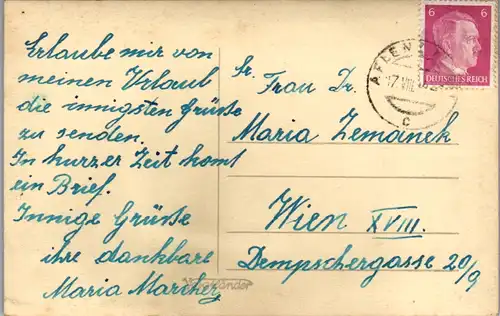 Erlaube mir von
meinen Urlaub
die innigsten Grüsse
zu senden.
In kurzer Zeit komt
ein Brief.
Innige Grüsse
ihre dankbare
Maria
Fr. Frau Dr.
Maria Zemanek
Wien XVIII.
Dempschergasse 20/9
6 6
DEUTSCHES REICH
AFLENZ
17. VIII.
c